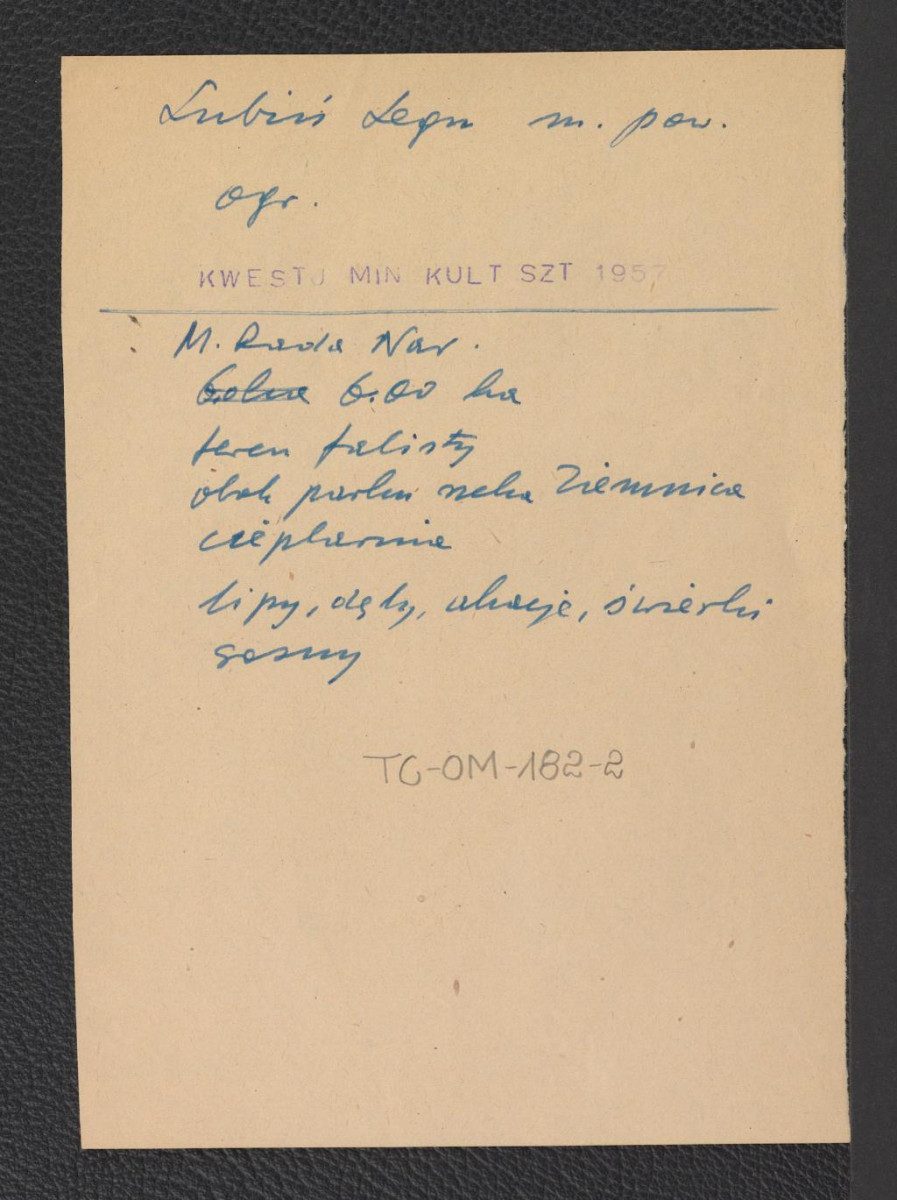 Lubiń Legn m. pow.
ogr.
KWESTJ MIN KULT SZT 1957
M. Rada Nar.
6.00 ha
teren falisty
obok parku rzeka Ziemnica
cieplarnie
lipy, dęby, akacje, świerki
sosny
TG-OM-182-2